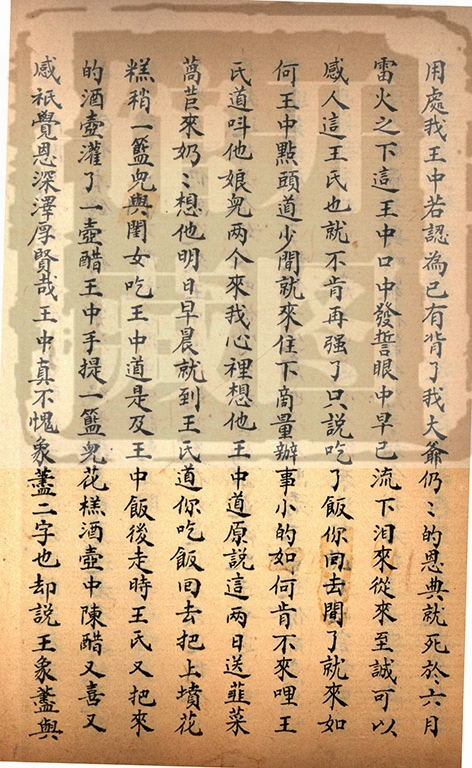 用處我王中若認為己有背了我大爺仍〻的恩典就死於六月
雷火之下這王中口中發誓眼中早已流下泪來從來至誠可以
感人這王氏也就不肯再强了只說吃了飯你回去閒了就來如
何王中點頭道少閒就來住下商量辦事小的如何肯不來哩王
氏道呌他娘兒两个來我心裡想他王中道原說這两日送韮菜
萵苣來奶〻想他明日早晨就到王氏道你吃飯回去把上墳花
糕稍一籃兒與閨女吃王中道是及王中飯後走時王氏又把來
的酒壺灌了一壺醋王中手提一籃兒花糕酒壺中陳醋又喜又
感祇覺恩深澤厚賢哉王中真不愧象藎二字也却說王象藎與